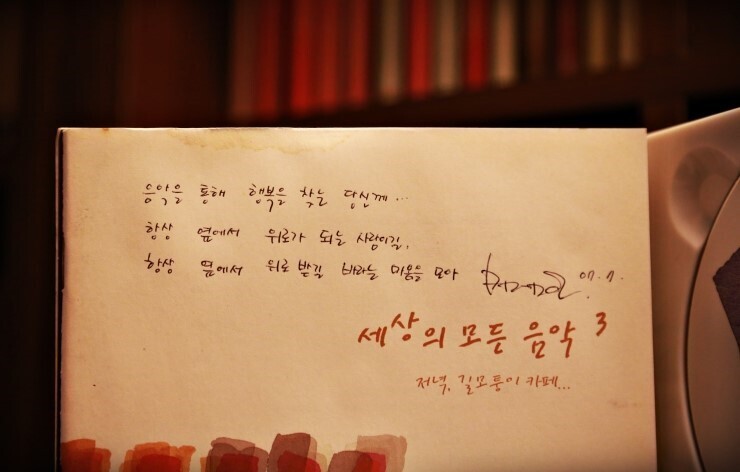 음악을 통해 행복을 찾는 당신께...
항상 옆에서 위로가 되는 사람이길,
항상 옆에서 위로 받길 바라는 마음을 모아
07. 7.
세상의 모든 음악 3
저녁, 길모퉁이 카페...